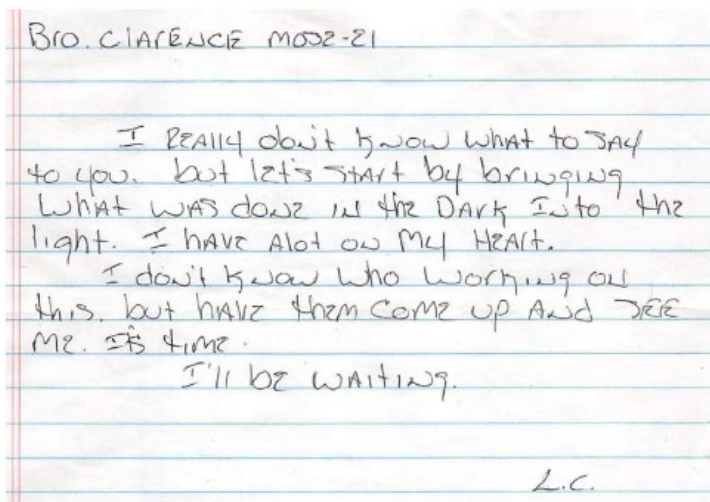 Bro. Clarence MOO2-21
I REAlly don't know what to say
to you. but let's start by bringing
what was done in the Dark Into the
light. I have Alot on My Heart.
I don't know who working on
this, but have them come up And SEE
me. It's time.
I'll be waiting.
L.C.